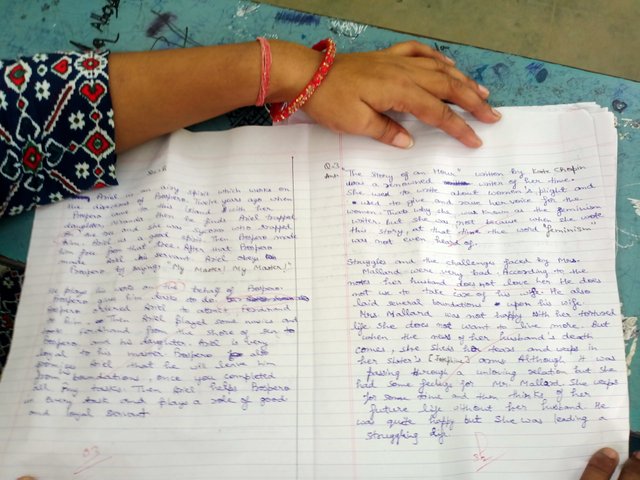 Ariel is an airy spirit which works on
the command of Prospero. Twelve years ago when
Prospero came to the island with her
daughter, Miranda then he finds Ariel trapped
for she was Sycorax who trapped
him. Ariel is a good spirit. Then Prospero made
him free from that tree. After that Prospero
made Ariel his servant. Ariel obeys
Prospero by saying "My Master! My Master!"
He plays his works on the behalf of Prospero.
Prospero give him tasks to do
Prospero ordered Ariel to attract Ferdinand
to him. Then Ariel played some music and
took Ferdinand from the shore of sea to
Prospero and his daughter. Ariel is very
loyal to his master Prospero also
promises Ariel that he will leave him
from foundations, once you completed
all my tasks. Then Ariel helps Prospero
in every task and plays a role of good
and loyal servant
93
Q.3
Ans
"The Story of an Hour" written by Kate Chopin
was a renowned writer of her time.
She used to write about women's plight and
used to give and raise her voice for the
women. That's why she was known as the feminism
writer but she was not because when she wrote
this story, at that time the word "feminism"
was not even heard of.
Struggles and the challenges faced by Mrs.
Mallard were very bad. According to the
notes her husband does not love her. He does
not use to take care of his wife. He also
laid several foundations upon his wife.
Mrs. Mallard was not happy with her tortured
life. She does not want to live more. But
when the news of her husband's death
comes, she sheds her tears and weeps in
her sister's [Josephine] arms. Although it was
passing through unloving relation but she
had some feelings for Mr. Mallard. She weeps
for some time and then thinks of her
future life without her husband. He
was quote happy but she was leading a
struggling life.